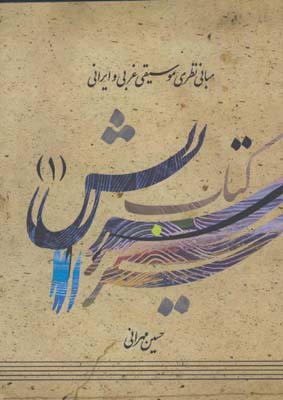 مبانی نظری موسیقی غربی و ایرانی
کتاب
سرایش (۱)
حسین مهرانی